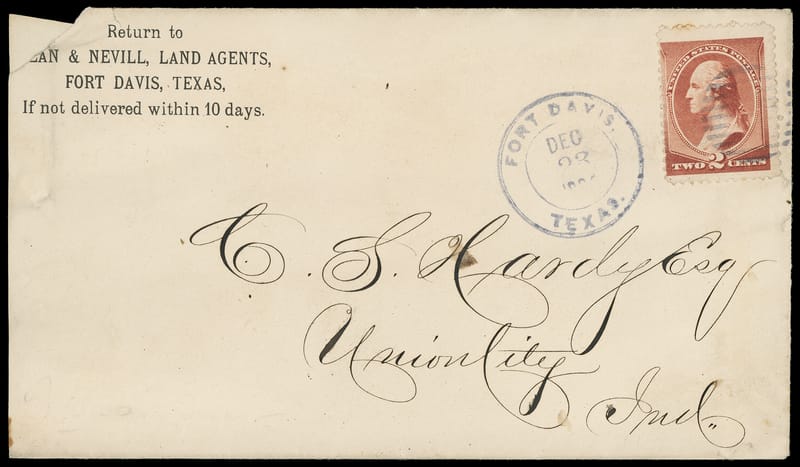 Return to
& NEVILL, LAND AGENTS,
FORT DAVIS, TEXAS,
If not delivered within 10 days.
UNITED STATES POSTAGE
TWO 2 CENTS
FORT DAVIS,
DEC
23
TEXAS.
C. S. Hardy Esq
Union City
Ind.